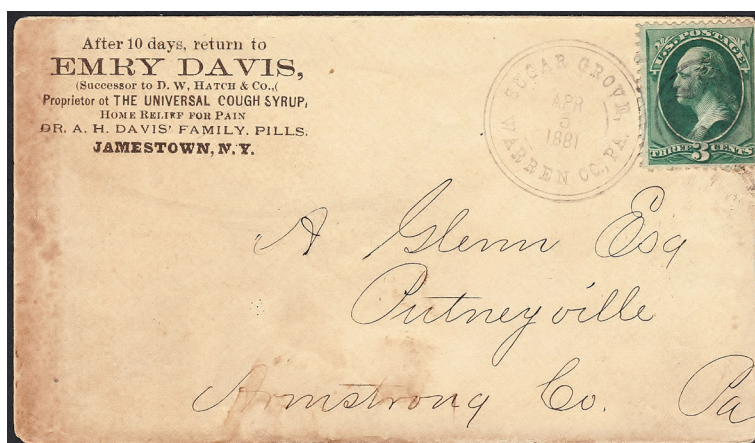 After 10 days, return to
EMRY DAVIS,
(Successor to D. W. HATCH & CO.,(
Proprietor ot THE UNIVERSAL COUGH SYRUP,
HOME RELIEF FOR PAIN
DR. A. H. DAVIS' FAMILY. PILLS.
JAMESTOWN, N.Y.
SUGAR GROVE,
APR
5
1881
WARREN CO., PA.
U.S. POSTAGE
THREE 3 CENTS
A Glenn Esq
Putneyville
Armstrong Co. Pa